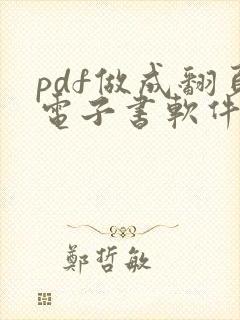 pdf做成翻頁
電子書軟件
鄭哲敏